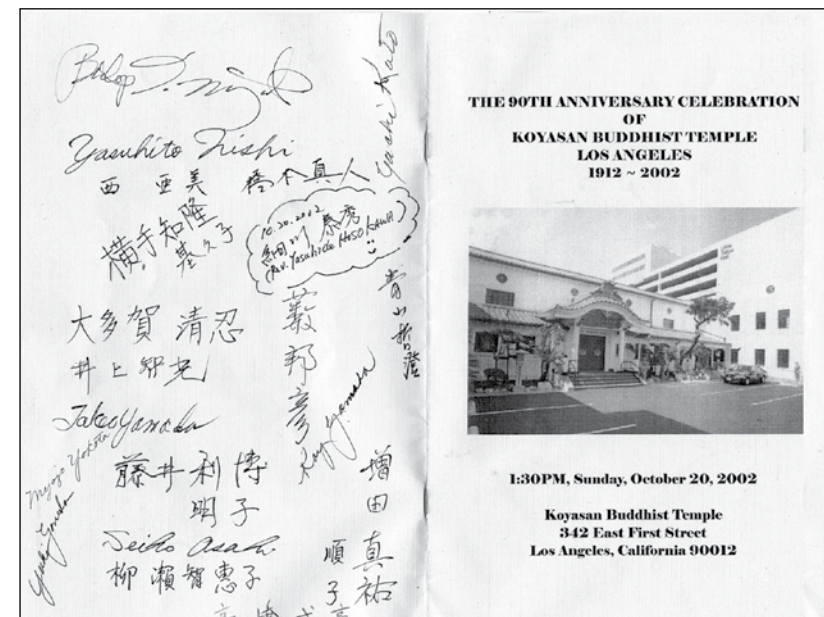 Bishop
Yasuhito Nishi
西 亜美
橋本真人
Yoichi Kato
横手知隆
基久子
10.20.2002
細川 泰秀
(Rev. Yasuhide HOSOKAWA)
大多賀 清忍
井上
藪邦彦
青山哲澄
Takeo Yamada
Kay Yamada
Myojo Yokota
藤井利博
明子
増田真祐
順子
Seiko Asahi
柳瀬智恵子
THE 90TH ANNIVERSARY CELEBRATION
OF
KOYASAN BUDDHIST TEMPLE
LOS ANGELES
1912 ~ 2002
1:30PM, Sunday, October 20, 2002
Koyasan Buddhist Temple
342 East First Street
Los Angeles, California 90012